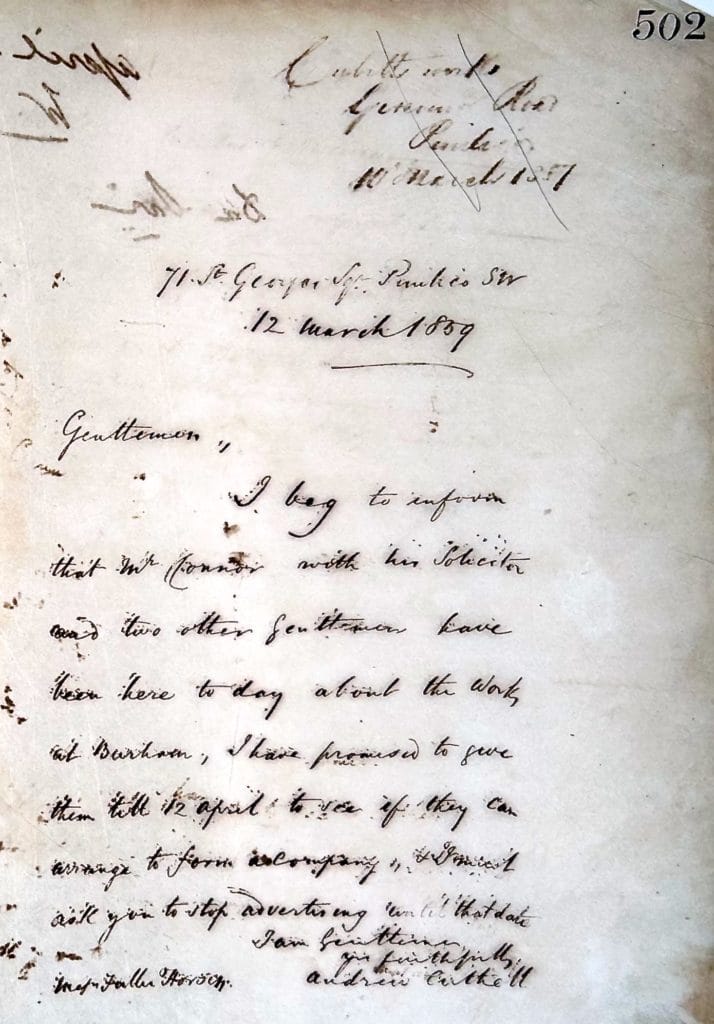 502
Cubitts works
Grosvenor Road
Pimlico
10 March 1857
71 St. Georges Sqr. Pimlico SW
12 March 1859
Gentlemen,,
I beg to inform
that Mr Connor with his Solicitor
and two other Gentlemen have
been here to day about the Works
at Burham,, I have promised to give
them till 12 april to see if they can
arrange to form a company,, & I must
ask you to stop advertising until that date
I am Gentlemen
yrs faithfully
Messrs Fuller Horsey.
andrew Cuthell